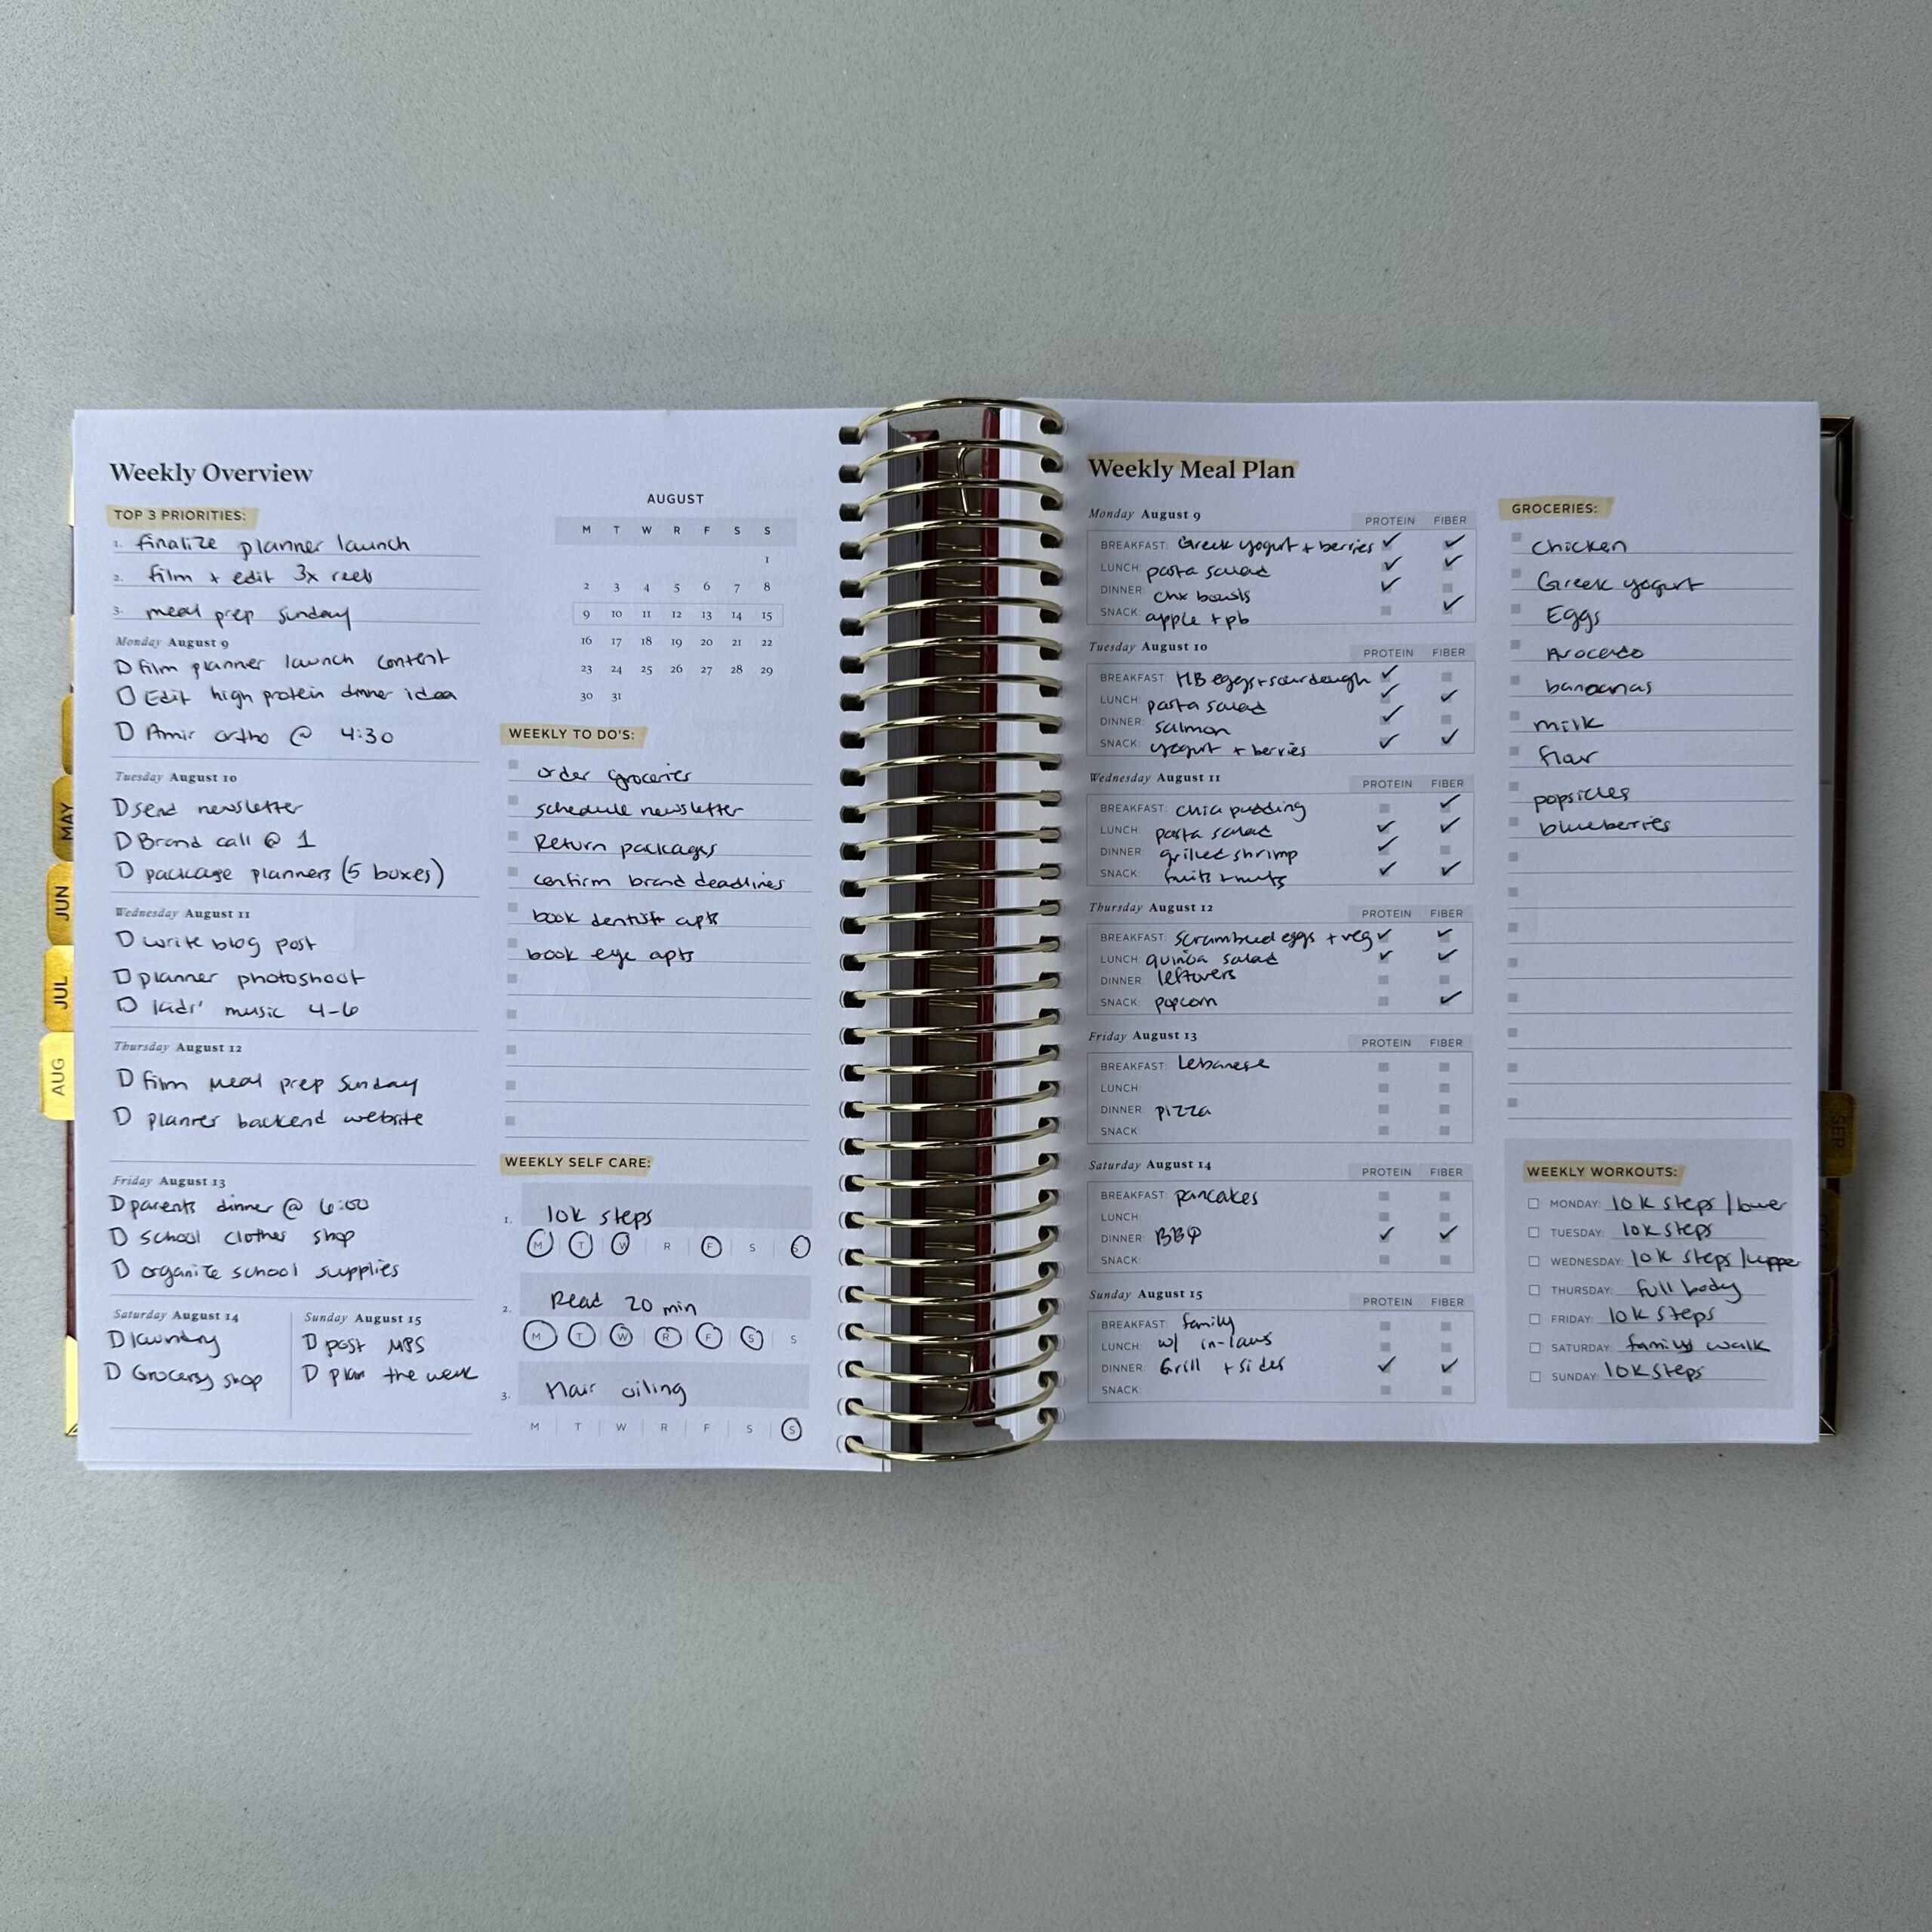 Weekly Overview
TOP 3 PRIORITIES:
1. finalize planner launch
2. film + edit 3x reels
3. meal prep sunday
Monday August 9
film planner launch content
Edit high protein dinner idea
Amir ortho @ 4:30
Tuesday August 10
send newsletter
Brand call @ 1
package planners (5 boxes)
Wednesday August 11
write blog post
planner photoshoot
kids' music 4-6
Thursday August 12
film meal prep Sunday
planner backend website
Friday August 13
parents dinner @ 6:00
school clothes shop
organize school supplies
Saturday August 14
laundry
Grocery shop
Sunday August 15
post MPS
plan the week
AUGUST
M T W R F S S
1
2 3 4 5 6 7 8
9 10 11 12 13 14 15
16 17 18 19 20 21 22
23 24 25 26 27 28 29
30 31
WEEKLY TO DO'S:
order groceries
schedule newsletter
Return packages
confirm brand deadlines
book dentist apts
book eye apts
WEEKLY SELF CARE:
1. 10k steps
M T W R F S S
2. Read 20 min
M T W R F S S
3. Hair oiling
M T W R F S S
MAY
JUN
JUL
AUG
Weekly Meal Plan
Monday August 9 PROTEIN FIBER
BREAKFAST: Greek yogurt + berries ✓ ✓
LUNCH: pasta salad ✓ ✓
DINNER: chx bowls ✓
SNACK: apple + pb ✓
Tuesday August 10 PROTEIN FIBER
BREAKFAST: HB eggs + sourdough ✓
LUNCH: pasta salad ✓ ✓
DINNER: salmon ✓
SNACK: yogurt + berries ✓ ✓
Wednesday August 11 PROTEIN FIBER
BREAKFAST: chia pudding ✓
LUNCH: pasta salad ✓ ✓
DINNER: grilled shrimp ✓
SNACK: fruits + nuts ✓ ✓
Thursday August 12 PROTEIN FIBER
BREAKFAST: scrambled eggs + veg ✓ ✓
LUNCH: quinoa salad ✓ ✓
DINNER: leftovers
SNACK: popcorn ✓
Friday August 13 PROTEIN FIBER
BREAKFAST: Lebanese
LUNCH:
DINNER: pizza
SNACK:
Saturday August 14 PROTEIN FIBER
BREAKFAST: pancakes
LUNCH:
DINNER: BBQ ✓ ✓
SNACK:
Sunday August 15 PROTEIN FIBER
BREAKFAST: family
LUNCH: w/ in-laws
DINNER: Grill + sides ✓ ✓
SNACK:
GROCERIES:
chicken
Greek yogurt
Eggs
Avocado
bananas
milk
flour
popsicles
blueberries
WEEKLY WORKOUTS:
MONDAY: 10k steps / lower
TUESDAY: 10k steps
WEDNESDAY: 10k steps / upper
THURSDAY: full body
FRIDAY: 10k steps
SATURDAY: family walk
SUNDAY: 10k steps
SEP
OCT